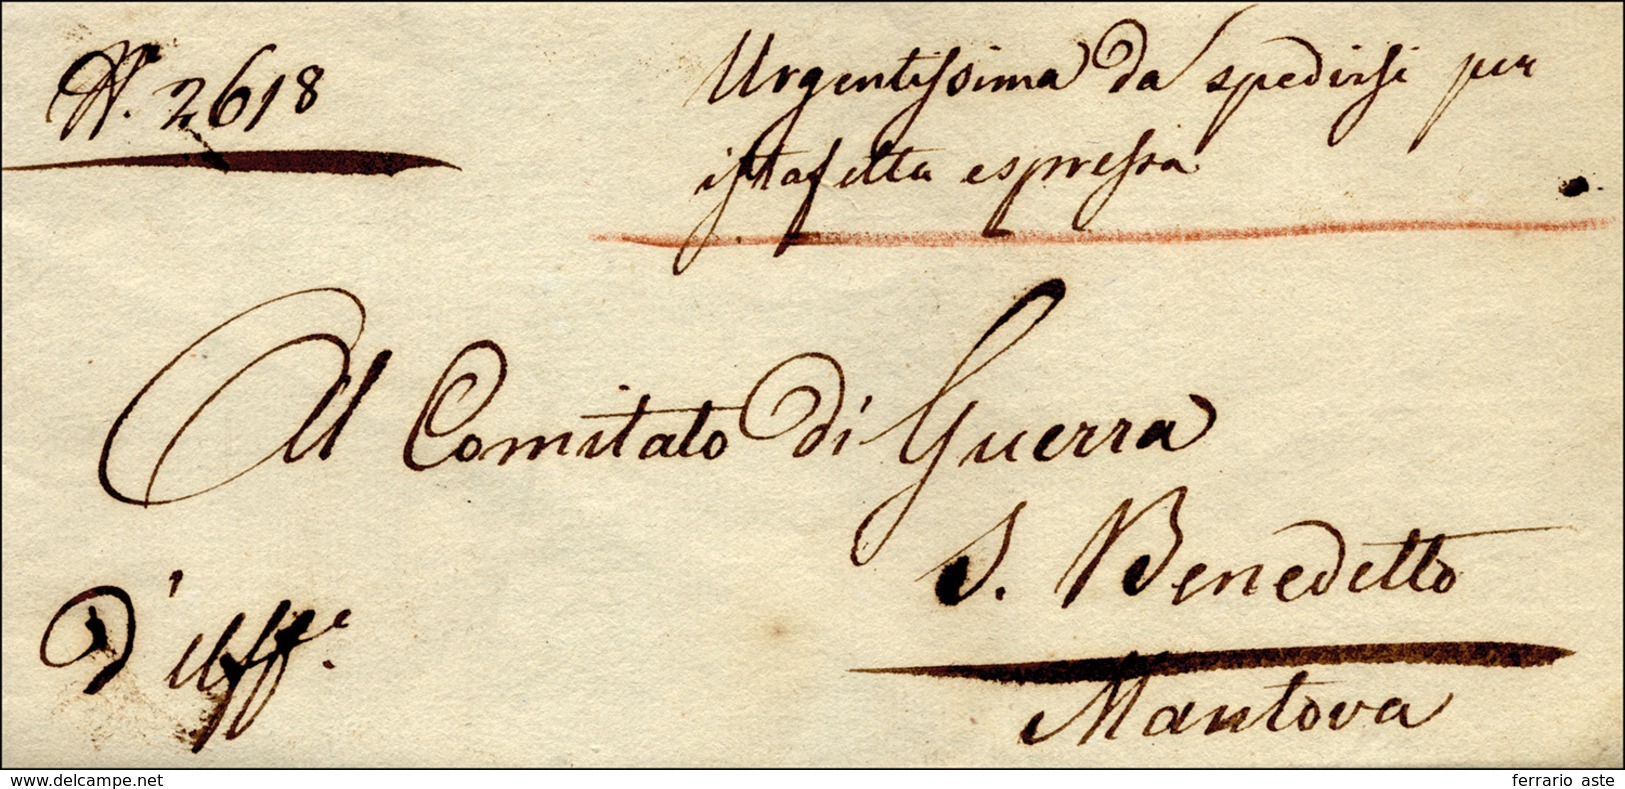 N.° 2618
Urgentissima da spedirsi per
istafetta espressa
Al Comitato di Guerra
S. Benedetto
D' Uff.°
Mantova
www.delcampe.net
ferrario aste